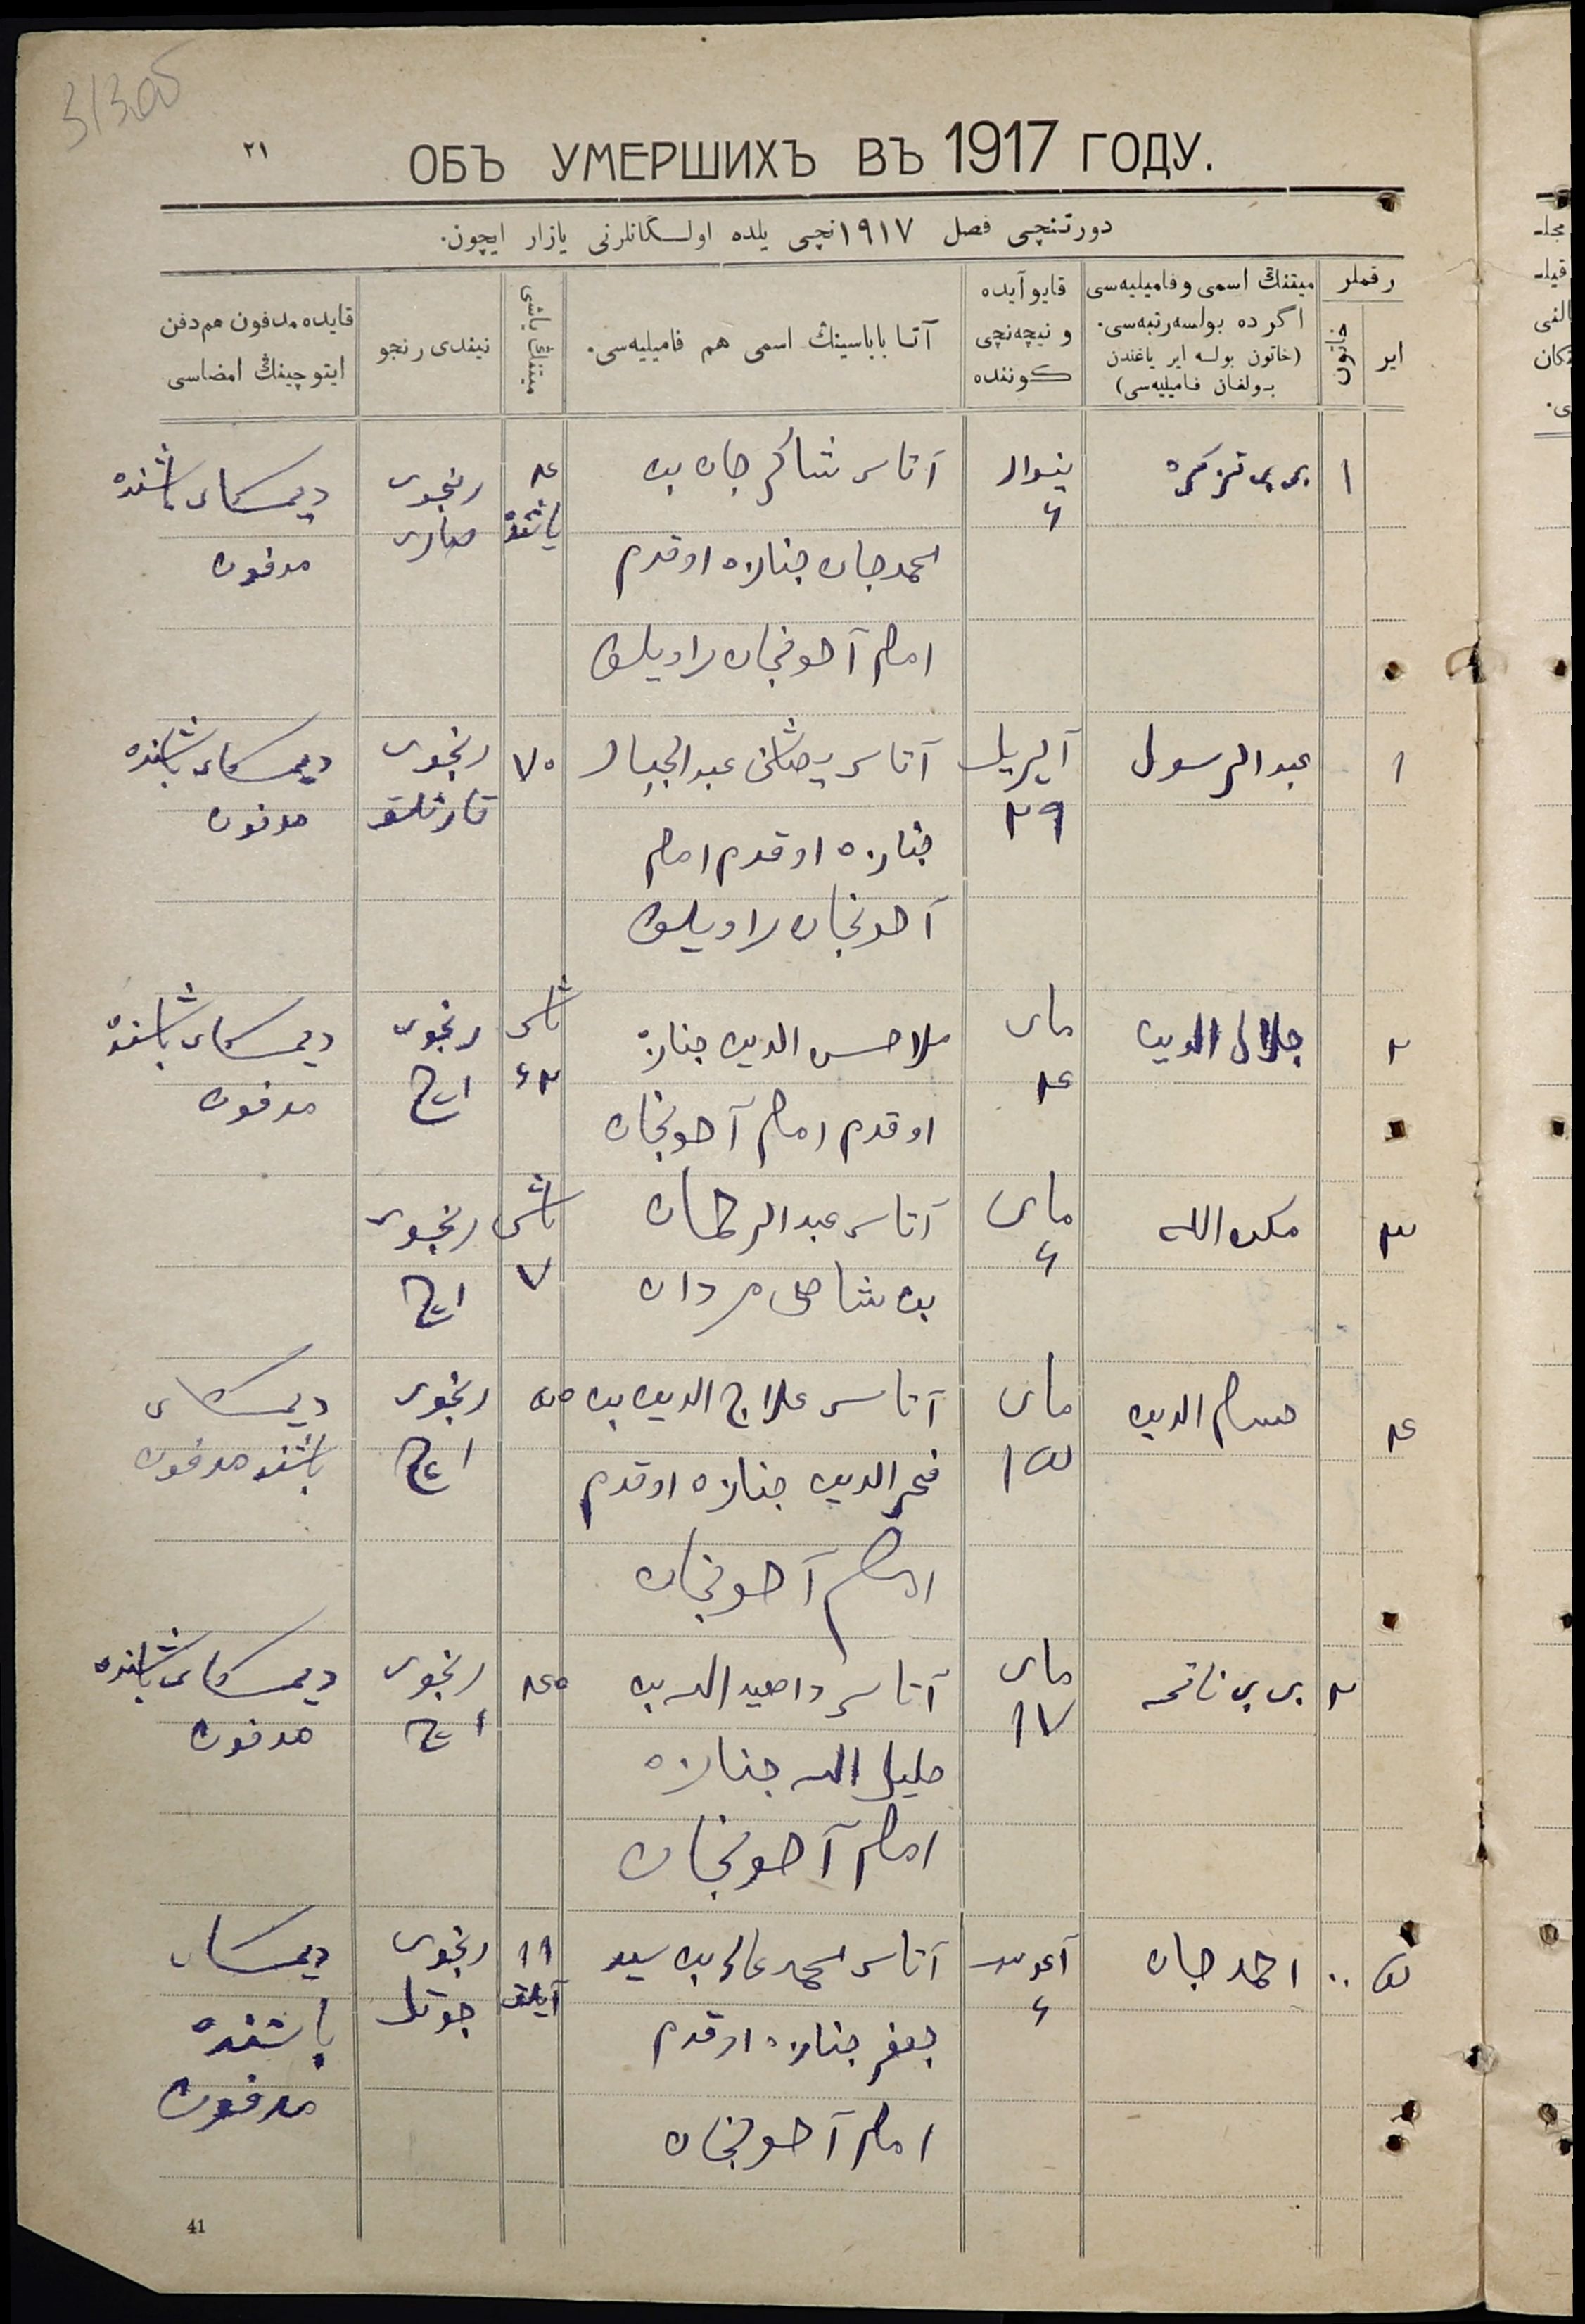 31300
٢١
ОБЪ УМЕРШИХЪ ВЪ 1917 ГОДУ.
دورتنچی فصل ١٩١٧نچی یلده اولـگانلرنی یازار ایچون.
رقملر
ایر
خاتون
میتنڭ اسمی و فامیلیه‌سی
اگر ده بولسه رتبه‌سی.
(خاتون بولسه ایر یاغندن
بولغان فامیلیه‌سی)
قایو آیده
و نیچه‌نچی
کوننده
آتا باباسینڭ اسمی هم فامیلیه‌سی.
میتنڭ یاشی
نیندی رنجو
قایده مدفون هم دفن
ایتوچینڭ امضاسی
١
بی بی تزکره
ینوار
٤
آتاسی شاکرجان بن
احمدجان جنازه اوقدم
امام آخونجان
٤
یاشنده
رنجوی
دیمسکای باشنده
مدفون
١
عبد الرسول
آپریل
٢٩
آتاسی عبدالجبار
جنازه اوقدم امام
آخونجان
٧٠
رنجوی
قارتلق
دیمسکای باشنده
مدفون
٢
جلال الدین
مای
٤
ملا حسن الدین جنازه
اوقدم امام آخونجان
یاش
٤٢
رنجوی
اچ
دیمسکای باشنده
مدفون
٣
الله
مای
٤
آتاسی عبد الرحمان
بن شاهی مردان
یاش
٧
رنجوی
اچ
٤
حسام الدین
مای
١٥
آتاسی علاج الدین بن
فخر الدین جنازه اوقدم
امام آخونجان
٥٥
رنجوی
اچ
دیمسکای
باشنده مدفون
٢
بی بی
مای
١٧
آتاسی بن
خلیل الله جنازه
امام آخونجان
٤٥
رنجوی
اچ
دیمسکای باشنده
مدفون
٥
احمد جان
آغوست
٤
آتاسی بن سید
جعفر جنازه اوقدم
امام آخونجان
١١
آیلق
رنجوی
جوتل
دیمسکای
باشنده
مدفون
41